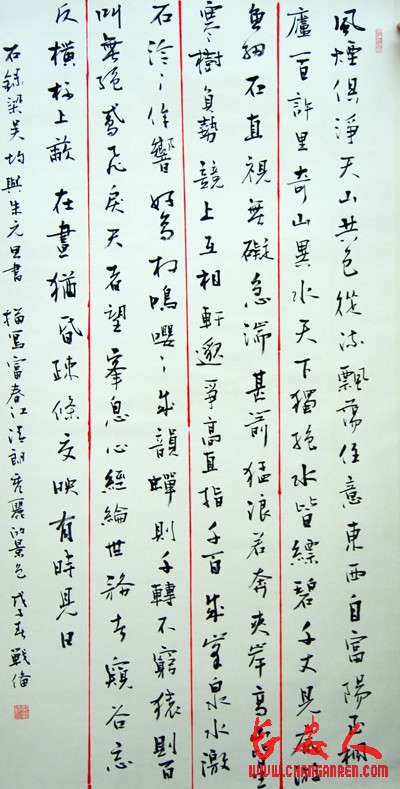 風煙俱淨天山共色從流飄蕩任意東西自富陽至桐
廬一百許里奇山異水天下獨絕水皆縹碧千丈見底游
魚細石直視無礙急湍甚箭猛浪若奔夾岸高山皆生
寒樹負勢競上互相軒邈爭高直指千百成峯泉水激
石泠〻作響好鳥相鳴嚶〻成韻蟬則千轉不窮猿則百
叫無絕鳶飛戾天者望峯息心經綸世務者窺谷忘
反橫柯上蔽在晝猶昏疎條交映有時見日
右錄梁吳均與朱元思書 描寫富春江清朗秀麗的景色 戊子春 戰備
长安人
WWW.CHANGANREN.COM